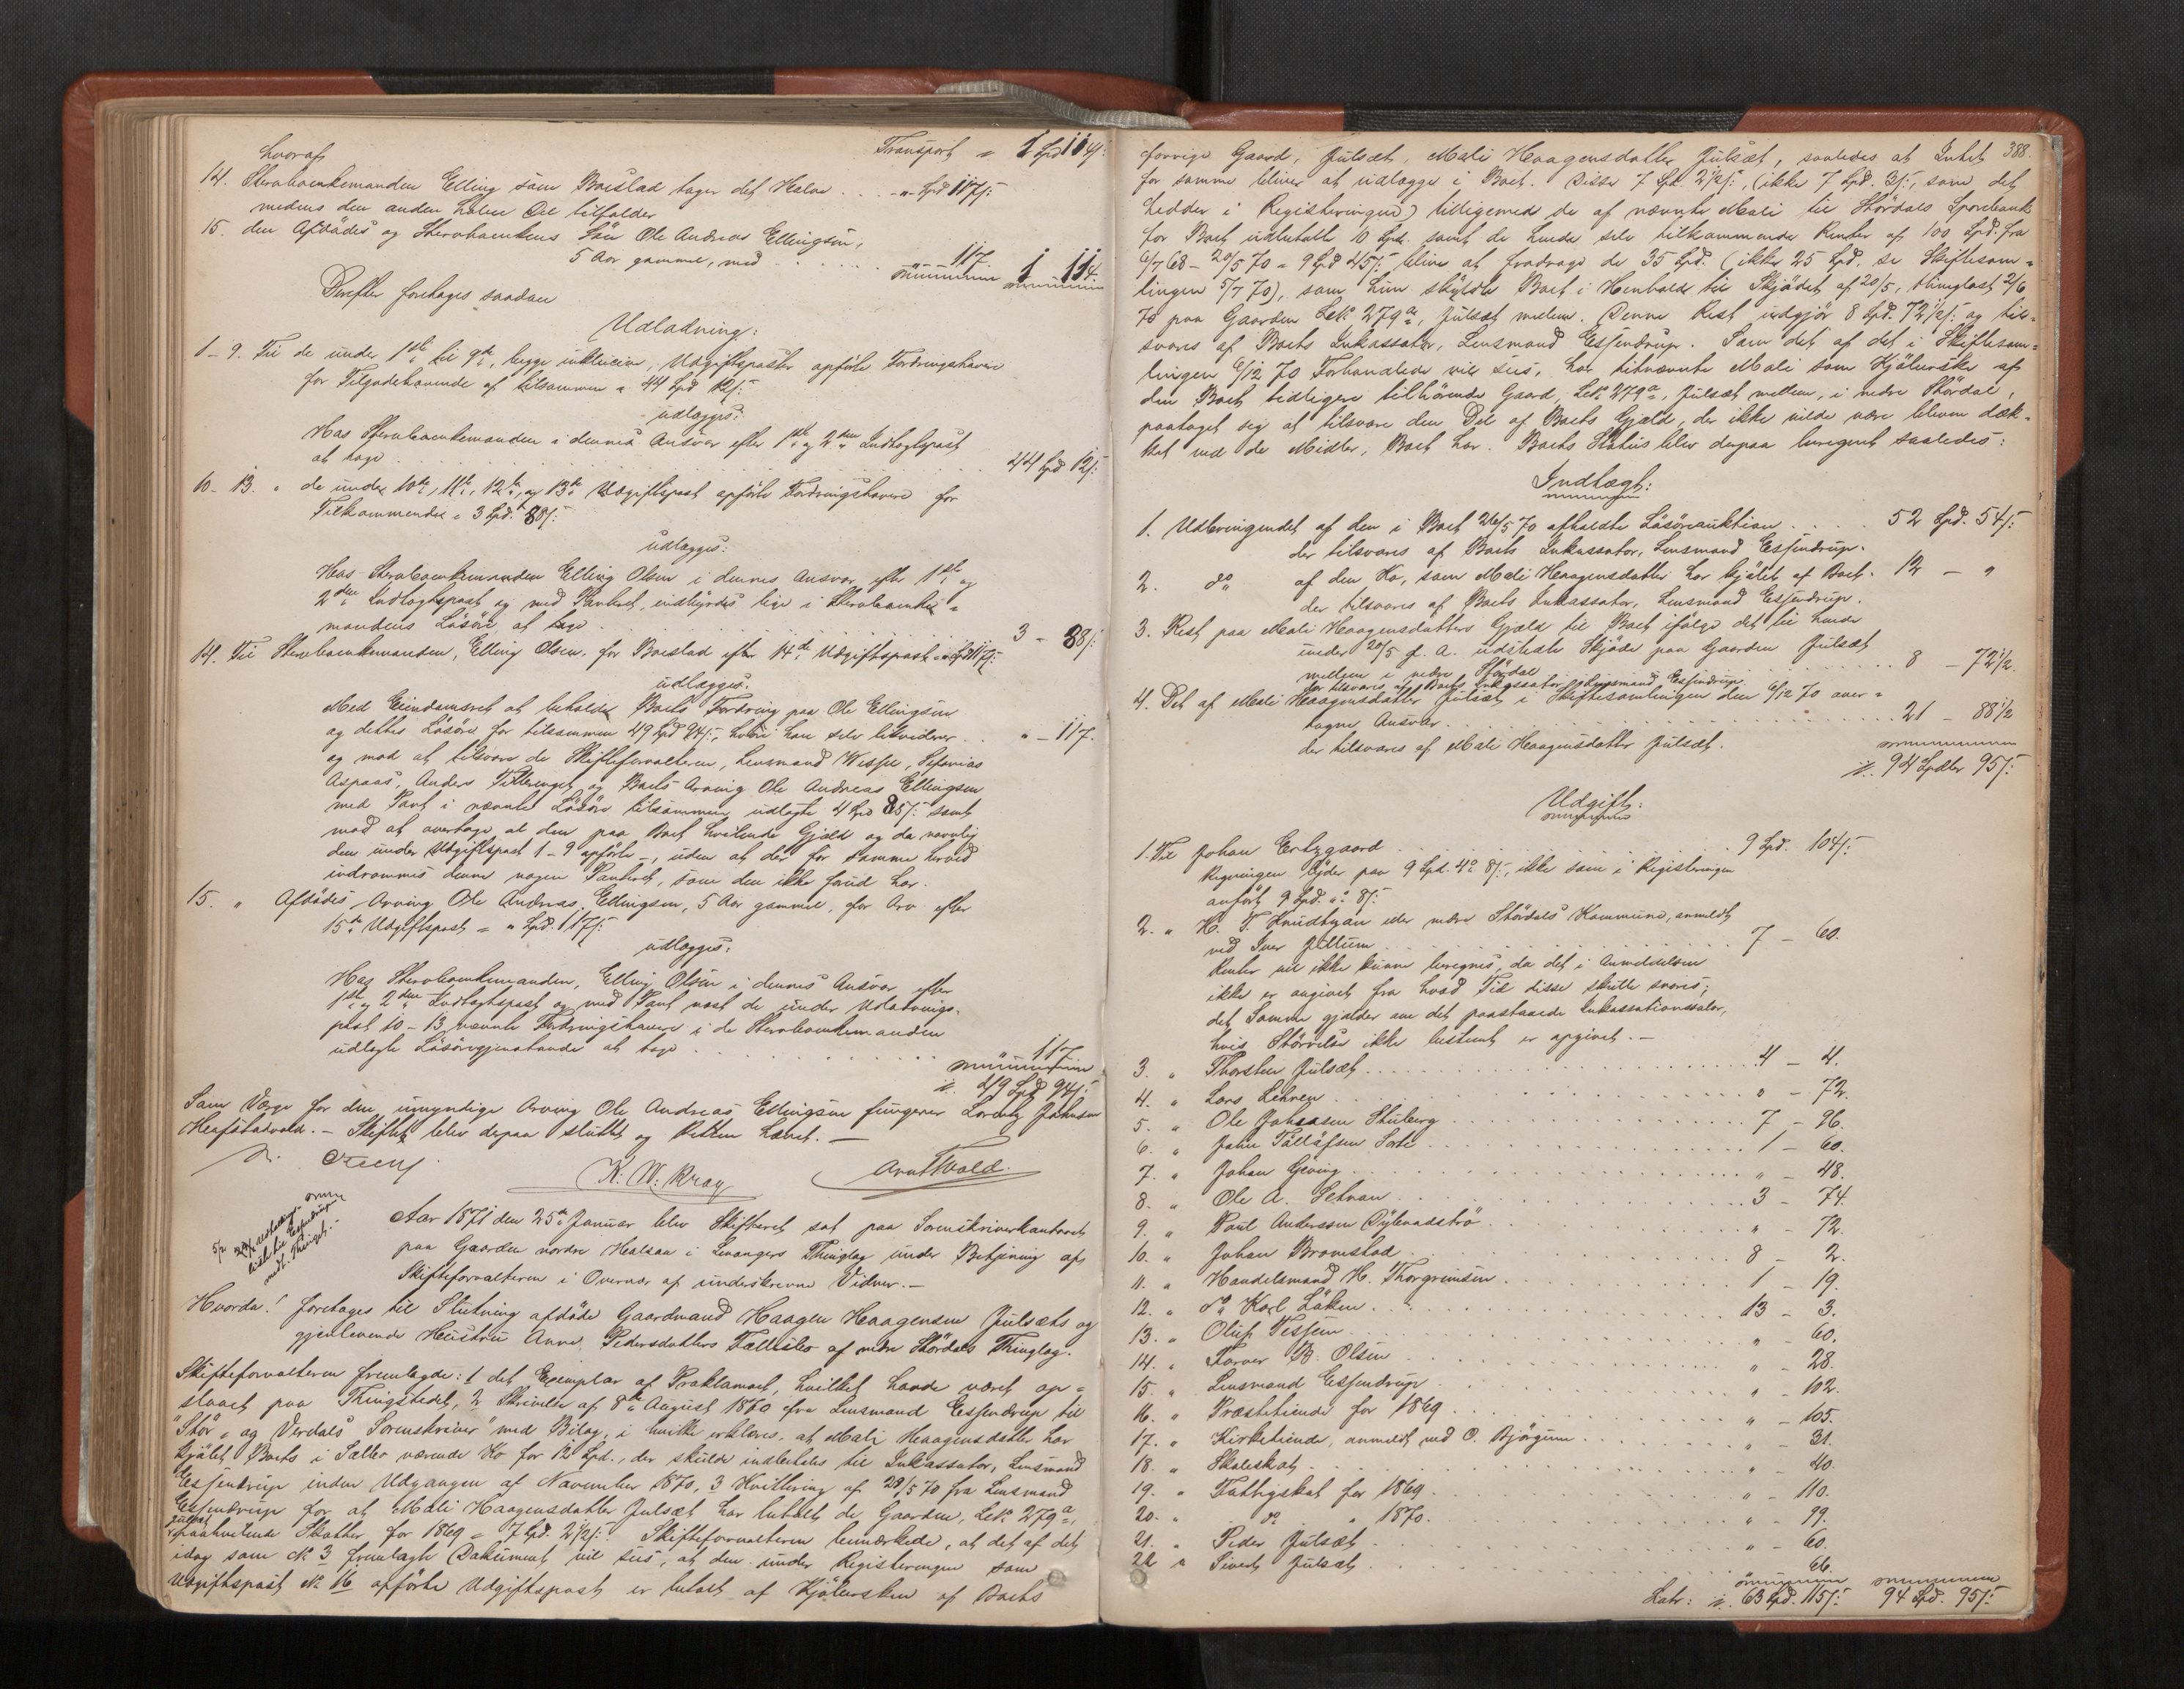 hvoraf Transport = 1 Spd 114 s:
14. Stervboenkemanden Elling som Boeslod tager det Halve . . . " Spd 117 s:
medens den anden halve Del tilfalder
15. den Afdødes og Stervboenkens Søn Ole Andreas Ellingsen,
5 Aar gammel, med . . . . . 117. 1 - 114.
Derefter foretoges saadan
Udladning:
1-9. Til de under 1ste til 9de, begge inklusive, Udgiftsposter opførte Fordringshavere
for Tilgodehavende af tilsammen = 44 Spd 12 s:
udlægges:
Hos Stervboenkemanden i dennes Ansvar efter 1ste og 2den Indtægtspost
at tage . . . . . 44 Spd 12 s:
10-13. " de under 10de, 11te, 12te og 13de Udgiftspost opførte Fordringshavere for
Tilkommende = 3 Spd. 88 s:
udlægges:
Hos Stervboenkemanden Elling Olsen i dennes Ansvar efter 1ste og
2den Indtægtspost og med Panteret, indbyrdes lige i Stervboenke-
mandens Løsøre at tage . . . . . 3 - 88 s:
14. Til Stervboenkemanden, Elling Olsen, for Boeslod efter 14de Udgiftspost = " Spd 117 s:
udlægges:
Med Eiendomsret at beholde Boets Fordring paa Ole Ellingsen
og dettes Løsøre for tilsammen 49 Spd 94 s:, hvori han selv likviderer . . " - 117.
og mod at tilsvare de Skifteforvalteren, Lensmand Wessel, Sefanias
Aspaas, Anders Vitterenget og Boets Arving Ole Andreas Ellingsen
med Pant i nævnte Løsøre tilsammen udlagte 4 Spd 85 s: samt
mod at overtage al den paa Boet hvilende Gjæld og da navnlig
den under Udgiftspost 1-9 opførte -, uden at der for samme herved
indrømmes denne nogen Panteret, som den ikke forud har.
15. " Afdødes Arving Ole Andreas Ellingsen, 5 Aar gammel, for Arv efter
15de Udgiftspost = " Spd. 117 s:
udlægges:
Hos Stervboenkemanden, Elling Olsen i dennes Ansvar efter
1ste og 2den Indtægtspost og med Pant næst de under Udladnings-
post 10-13 nævnte Fordringshavere i de Stervboenkemanden
udlagte Løsøregjenstande at tage . . . . . 117
is. 49 Spd 94 s:
Som Værge for den umyndige Arving Ole Andreas Ellingsen fungerer Lorentz Johnsen
Hafstadvold. - Skiftet blev derpaa sluttet og Retten hævet. -
K. M. Kray Arnt Wold.
5/2 Udladnings-
list til Essendrup
medt. Thinget. -
Aar 1871 den 25de Januar blev Skifteret sat paa Sorenskriverkontoret
paa Gaarden nordre Halsan i Levangers Thinglag under Betjening af
Skifteforvalteren i Overvær af underskrevne Vidner. -
Hvorda! foretoges til Slutning afdøde Gaardmand Haagen Haagensen Julsæts og
gjenlevende Hustru Anne Pedersdatters Fællesbo af nedre Stördals Thinglag.
Skifteforvalteren fremlagde: 1 det Exemplar af Proklamaet, hvilket havde været op-
slaaet paa Thingstedet, 2 Skrivelse af 8de August 1870 fra Lensmand Essendrup til
"Stør- og Verdals Sorenskriver" med Bilag, i hvilke erklæres, at Mali Haagensdatter har
kjøbt Boets i Sælbo værende Ko for 12 Spd., der skulde indbetales til Inkassator, Lensmand
Essendrup inden Udgangen af November 1870, 3 Kvittering af 28/5 70 fra Lensmand
Essendrup for at Mali Haagensdatter Julsæt har betalt de Gaarden, Lbk. 279a,
Julsæt paahvilende Skatter for 1869 = 7 Spd. 2 1/2 s: Skifteforvalteren bemærkede, at det af det
idag som No 3 fremlagte Dokument vil sees, at den under Registeringen som
Udgiftspost No 16 opførte Udgiftspost er betalt af Kjøbersken af Boets
388.
forrige Gaard, Julsæt, Mali Haagensdatter Julsæt, saaledes at Intet
for samme bliver at udlægge i Boet. Disse 7 Spd. 2 1/2 s:, (ikke 7 Spd. 3 s:, som det
hedder i Registeringen) tilligemed de af nævnte Mali til Stördals Sparebank
for Boet udbetalte 10 Spd. samt de hende selv tilkommende Renter af 100 Spd. fra
6/7 68 - 20/5 70 = 9 Spd 45 s: bliver at fradrage de 35 Spd. (ikke 25 Spd. se Skiftesam-
lingen 5/7 70), som hun skyldte Boet i Henhold til Skjødet af 20/5, thinglæst 2/6
70 paa Gaarden Lbk. 279a, Julsæt mellem. Denne Rest udgjør 8 Spd. 72 1/2 s: og til-
svares af Boets Inkassator, Lensmand Essendrup. Som det af det i Skiftesam-
lingen 6/12 70 Forhandlede vil sees, har bemeldte Mali som Kjøberske af
den Boet tidligere tilhørende Gaard, Lbk. 279a, Julsæt mellem, i nedre Stördal,
paataget sig at tilsvare den Del af Boets Gjæld, der ikke vilde være bleven dæk-
ket ved de Midler, Boet har. Boets Status blev derpaa beregnet saaledes:
Indtægt:
1. Udbringendet af den i Boet 26/5 70 afholdte Løsøreauktion . . . . 52 Spd. 54 s:
der tilsvares af Boets Inkassator, Lensmand Essendrup.
2. do af den Ko, som Mali Haagensdatter har kjøbt af Boet. 12 - "
der tilsvares af Boets Inkassator, Lensmand Essendrup.
3. Rest paa Mali Haagensdatters Gjæld til Boet ifølge det til hende
under 20/5 f. A. udstedte Skjøde paa Gaarden Julsæt
mellem i nedre Stördal . . . . . 8 - 72 1/2.
der tilsvares af Boets Inkassator, Lensmand Essendrup.
4. Det af Mali Haagensdatter Julsæt i Skiftesamlingen den 6/12 70 over-
tagne Ansvar . . . . . 21 - 88 1/2
der tilsvares af Mali Haagensdatter Julsæt.
is. 94 Spdlr 95 s:
Udgift:
1. Til Johan Ertzgaard . . . . . 9 Spd. 104 s:
Regningen lyder paa 9 Spd. 4 o 8 s:, ikke som i Registeringen
anført 9 Spd. " o 8 s:
2. " H. T. Knudtzon eller nedre Stördals Kommune, anmeldt
ved Iver Jullum . . . . . 7 - 60.
Renter vil ikke kunne beregnes, da det i Anmeldelsen
ikke er angivet fra hvad Tid disse skulle svares;
det Samme gjælder om det paastaaede Inkassationssalær,
hvis Størrelse ikke bestemt er opgivet. -
3. " Thorsten Julsæt . . . . . 4 - 4.
4. " Lars Lehren . . . . . " - 72.
5. " Ole Johnsen Stuberg . . . . . 7 - 96.
6. " John Tollefsen Sorte . . . . . 1 - 60.
7. " Johan Geving . . . . . " - 48.
8. " Ole A. Selvan . . . . . 3 - 74.
9. " Paul Anderssen Dyvadströ . . . . . " - 72.
10. " Johan Bromstad . . . . . 8 - 2.
11. " Handelsmand H. Thorgrimsen . . . . . 1 - 19.
12. " do Karl Løken . . . . . 13 - 3.
13. " Oluf Tessem . . . . . " - 60.
14. " Farver B. Olsen . . . . . " - 28.
15. " Lensmand Essendrup . . . . . " - 102.
16. " Præstetiende for 1869 . . . . . " - 105.
17. " Kirketiende, anmeldt ved O. Bjørgum . . . . . " - 31.
18. " Skoleskat . . . . . " - 40.
19. " Fattigskat for 1869 . . . . . " - 110.
20. " do " 1870. . . . . " - 99.
21. " Peder Julsæt . . . . . " - 60.
22 " Sivert Julsæt . . . . . 66.
Latr: is. 63 Spd. 115 s: 94 Spd. 95 s: